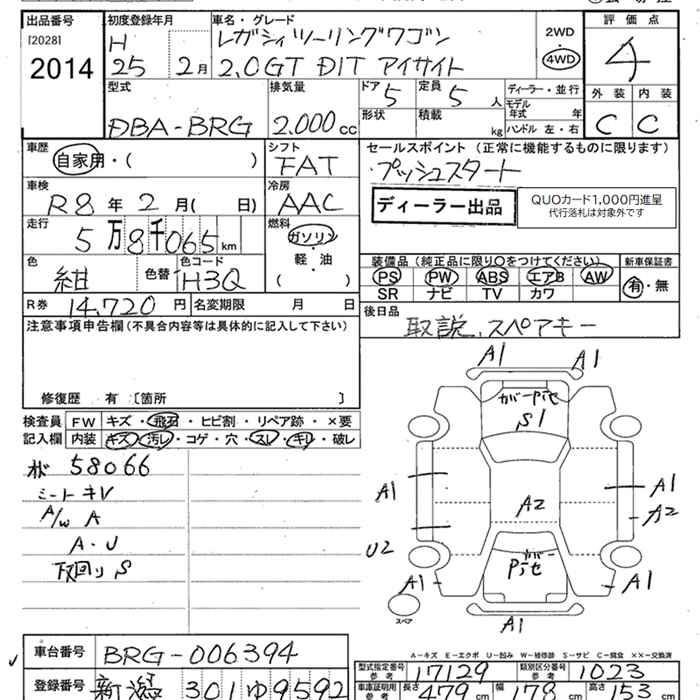 出品番号 初度登録年月 車名・グレード 評価点
[2028] H レガシィツーリングワゴン 2WD
2014 25 2月 2.0GT DIT アイサイト 4WD 4
型式 排気量 ドア 5 定員 5人 ディーラー・並行 外装 内装
形状 積載 kg モデル年式 年
DBA-BRG 2.000cc ハンドル 左・右 C C
車歴 シフト セールスポイント (正常に機能するものに限ります)
自家用・( ) FAT プッシュスタート
車検 冷房
R8年2月( 日) AAC ディーラー出品 QUOカード1,000円進呈
代行落札は対象外です
走行 燃料
5万8千065km ガソリン
軽・油
( )
色 紺 色替 色コード H3Q
装備品 (純正品に限り○をつけてください) 新車保証書
PS PW ABS エアB AW 有・無
SR ナビ TV カワ
R券 14,720円 名変期限 月 日
後日品 取説、スペアキー
注意事項申告欄 (不具合内容等は具体的に記入して下さい)
修復歴 有 〔箇所 〕
検査員 FW キズ・飛石・ヒビ割・リペア跡・×要
記入欄 内装 キズ・汚レ・コゲ・穴・スレ・キレ・破レ
58066
シートキV
A/W A
A・U
下回りS
A1 A1
ガバーPite
S1
A1 A1
A2 A2
U2
ガバー
Pite
A1 A1
スペア A1
A-キズ E-エクボ U-凹み W-補修跡 S-サビ C-腐食 ××-交換済
車台番号 BRG-006394
型式指定番号 参考 17129 類別区分番号 参考 1023
登録番号 新潟 301 ゆ 9592
車庫証明用 参考 長さ 479cm 幅 178cm 高さ 153cm